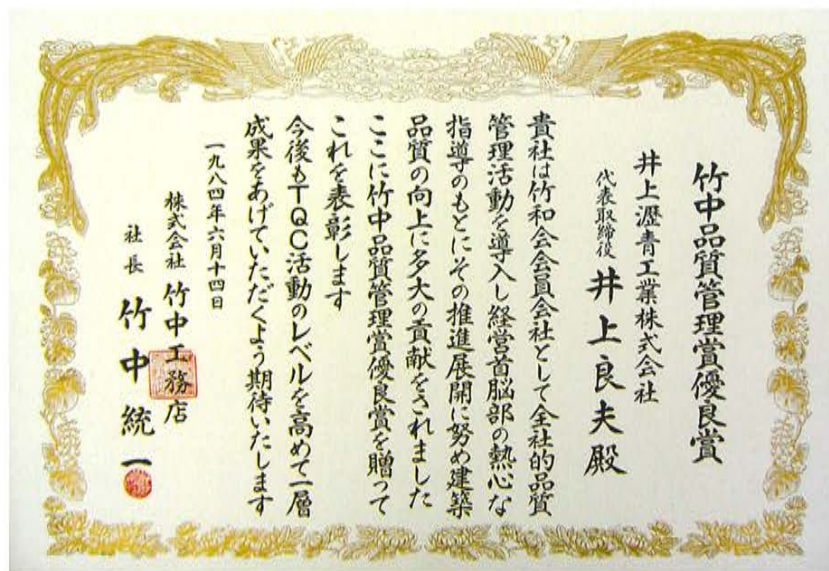 竹中品質管理賞優良賞
井上瀝青工業株式会社
代表取締役 井上良夫殿
貴社は竹和会会員会社として全社的品質
管理活動を導入し経営首脳部の熱心な
指導のもとにその推進展開に努め建築
品質の向上に多大の貢献をされました
ここに竹中品質管理賞優良賞を贈って
これを表彰します
今後もTQC活動のレベルを高めて一層
成果をあげていただくよう期待いたします
一九八四年六月十四日
株式会社 竹中工務店
社長 竹中統一